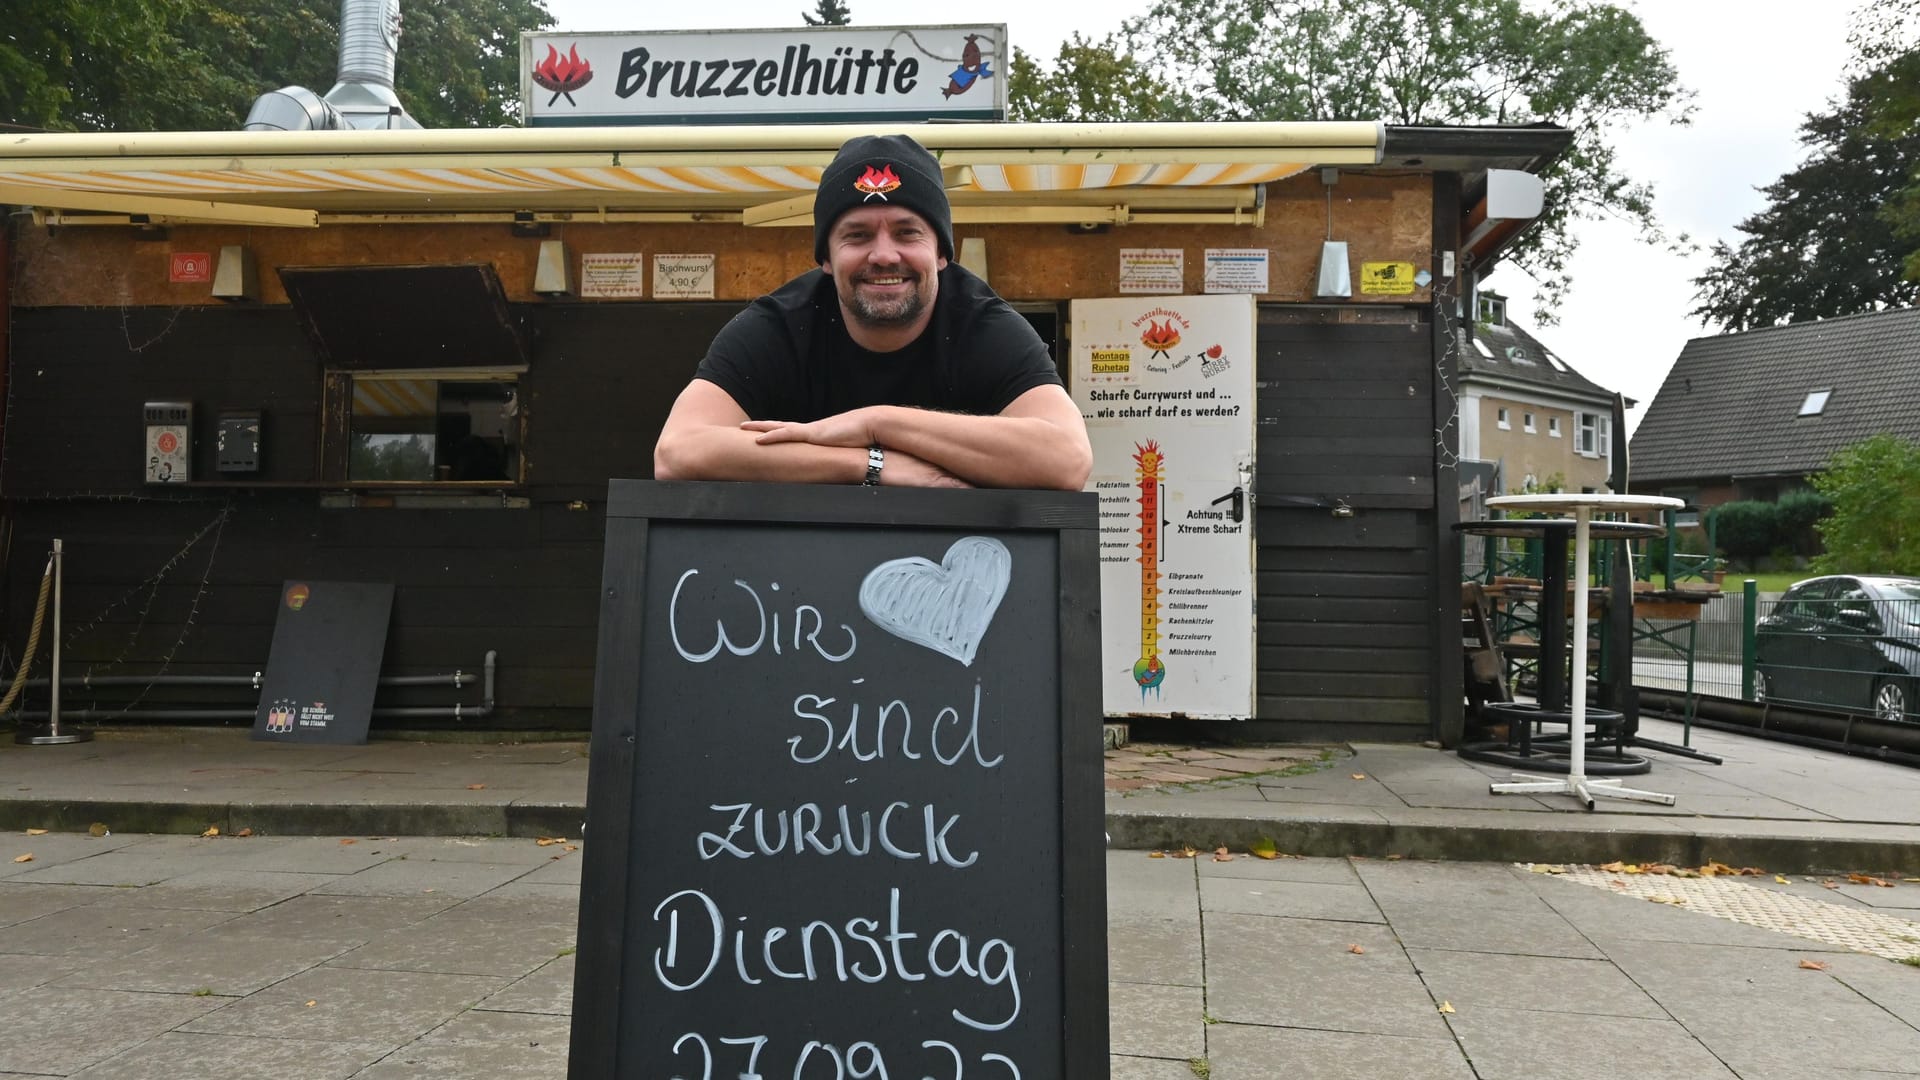 Bruzzelhütte
Bruzzelhütte
Bisonwurst
4,90 €
bruzzelhuette.de
Bruzzelhütte
Montags
Ruhetag
Catering - Festivals
I
CURRY
WURST
Scharfe Currywurst und ...
... wie scharf darf es werden?
Endstation
12
11
10
9
8
7
Achtung !!!
Xtreme Scharf
6 Elbgranate
5 Kreislaufbeschleuniger
4 Chilibrenner
3 Rachenkitzler
2 Bruzzelcurry
1 Milchbrötchen
DIE SCHORLE
FÄLLT NICHT WEIT
VOM STAMM.
Wir
sind
zurück
Dienstag
27.09.22